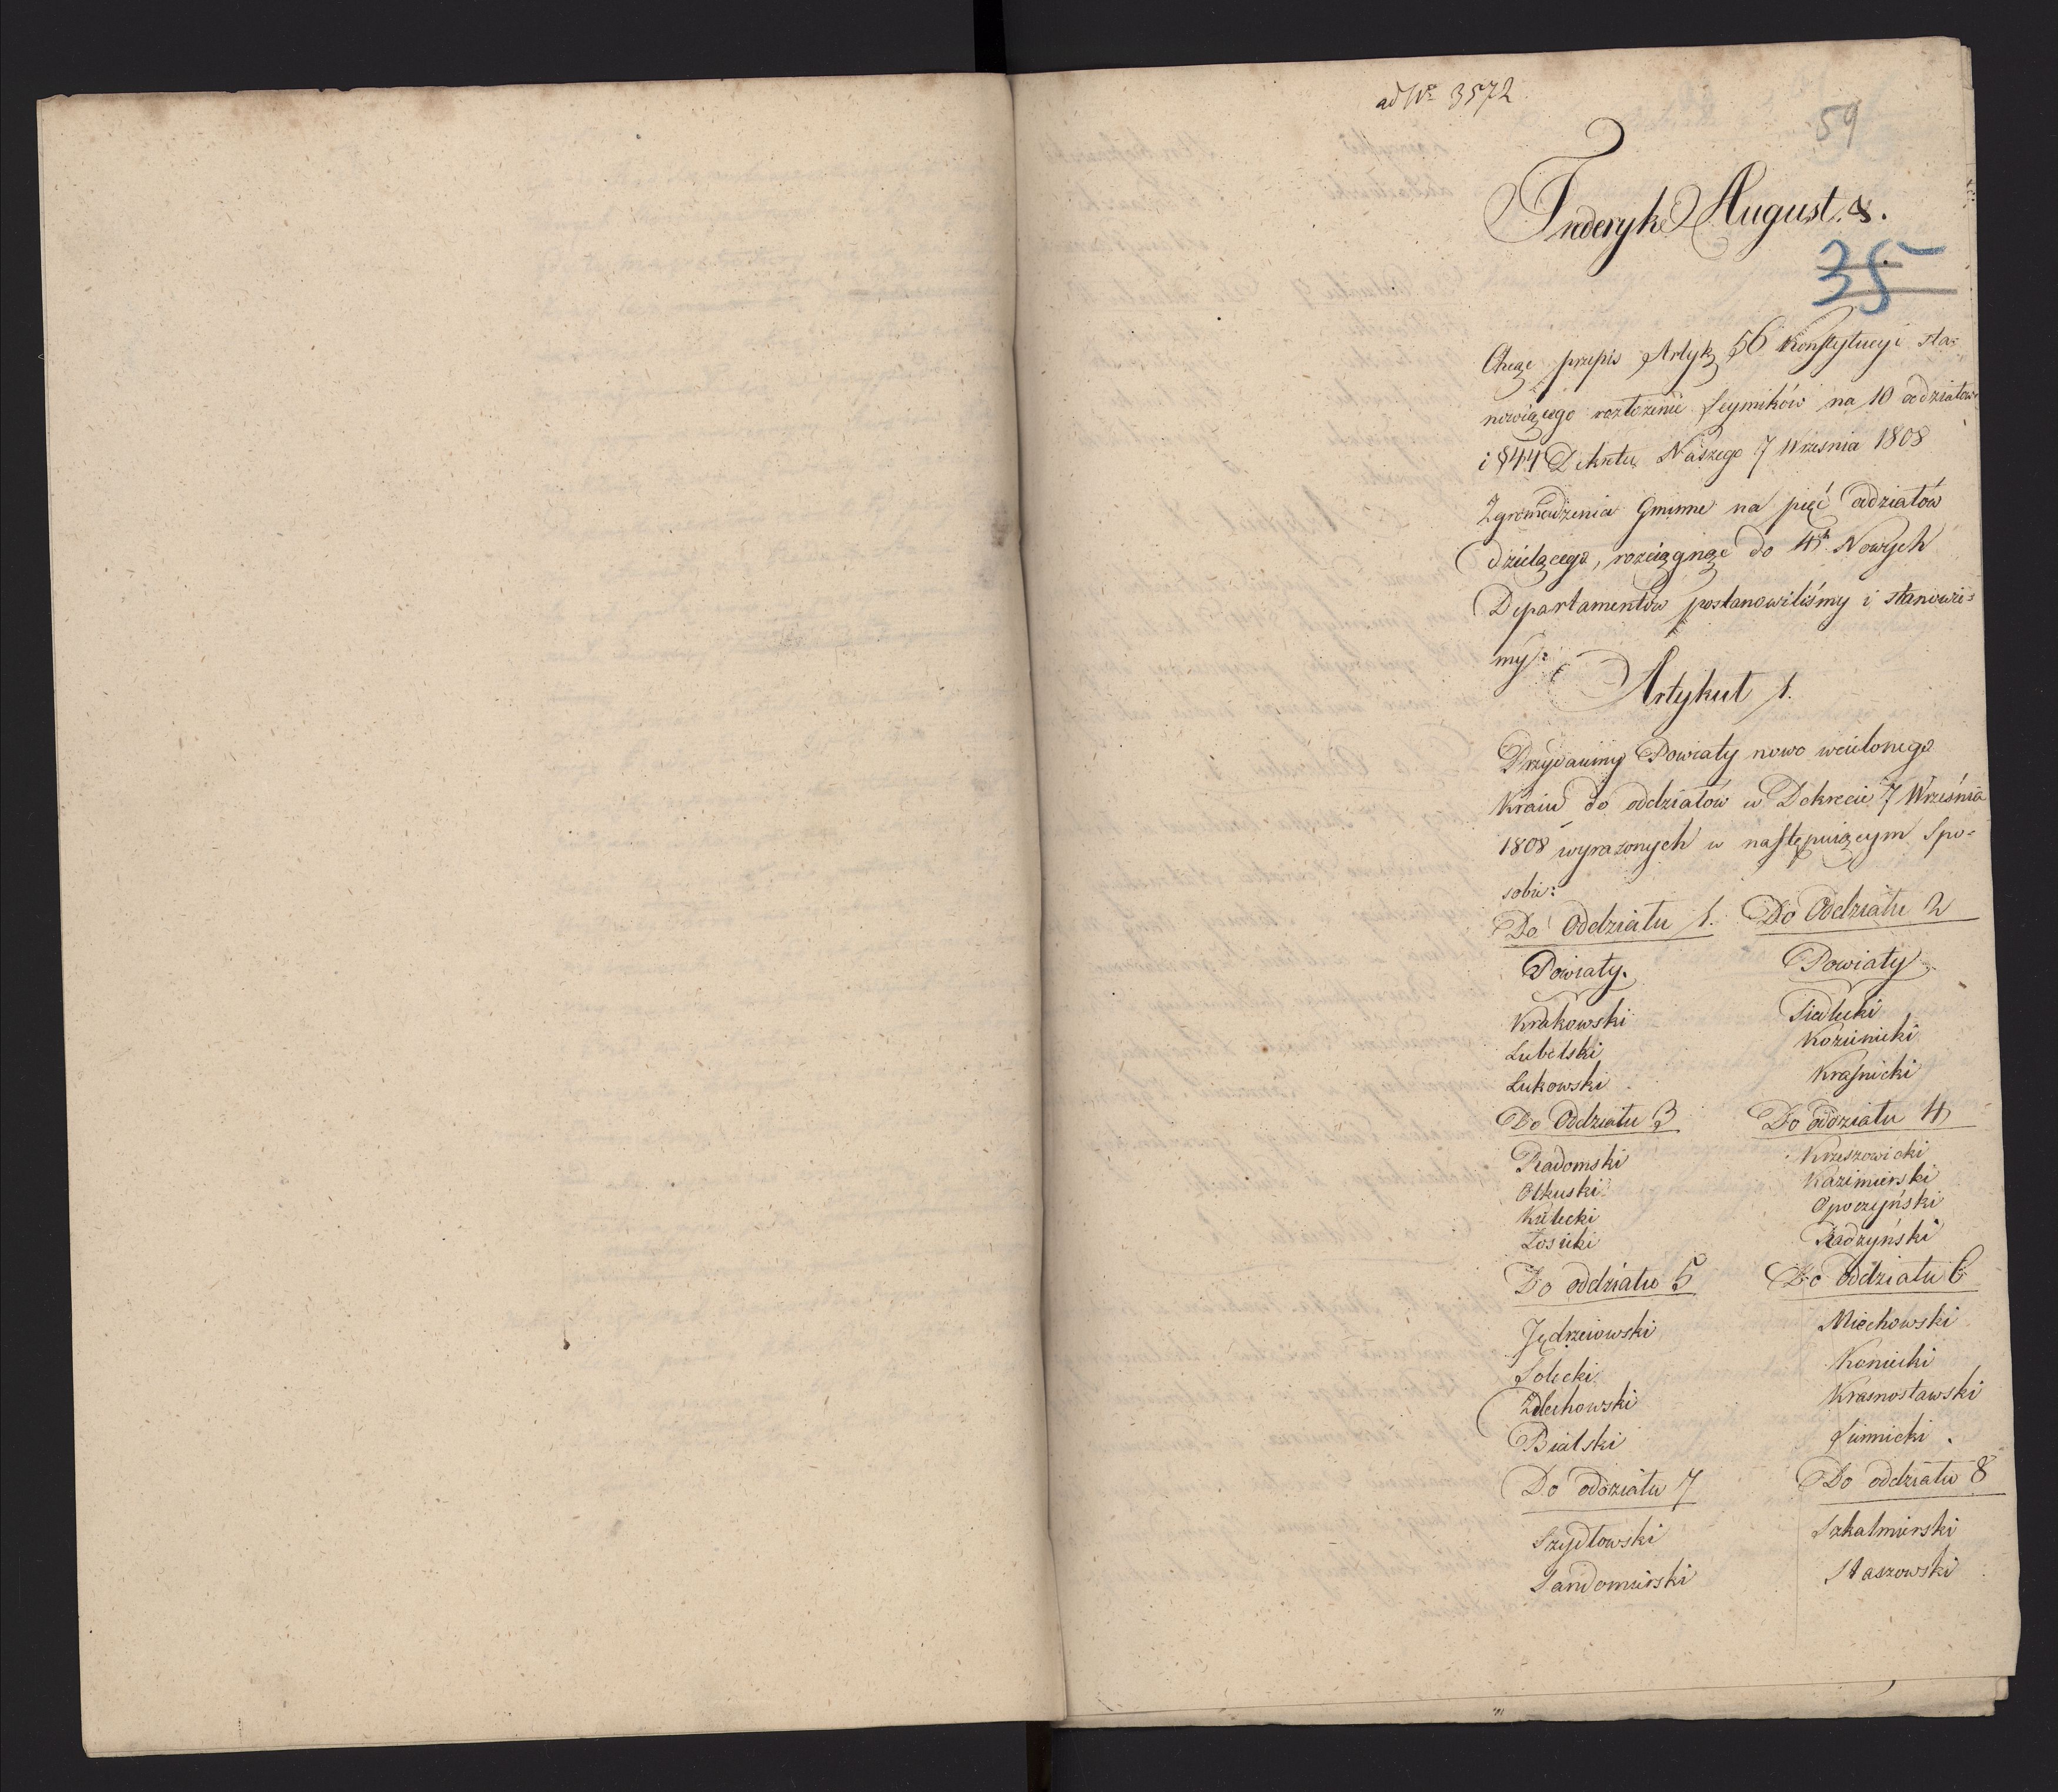 ad Nº 3572
59
Fryderyk August &.
35
Chcąc przepis Artyk. 56 Konstytucyi sta=
nowiącego rozłożenie Seymików na 10 oddziałów
i §44 Dekretu Naszego 7 Września 1808
Zgromadzenia Gminne na pięć oddziałów
dzielącego, rozciągnąć do 4ch Nowych
Departamentów postanowiliśmy i stanowi=
my:
Artykuł 1.
Przydaiemy Powiaty nowo wcielonego
Kraiu do oddziałów w Dekrecie 7 Września
1808 wyrażonych w następuiącym Spo=
sobie:
Do Oddziału 1. Do Oddziału 2
Powiaty. Powiaty
Krakowski Siedlecki
Lubelski Kozienicki
Łukowski Kraśnicki
Do Oddziału 3 Do oddziału 4
Radomski Krzeszowicki
Olkuski Kazimierski
Kielecki Opoczyński
Łosicki Radzyński
Do oddziału 5 Do oddziału 6
Jędrzeiowski Miechowski
Solecki Koniecki
Żelechowski Krasnostawski
Bialski Siennicki.
Do oddziału 7 Do oddziału 8
Szydłowski Szkalmierski
Sandomierski Staszowski